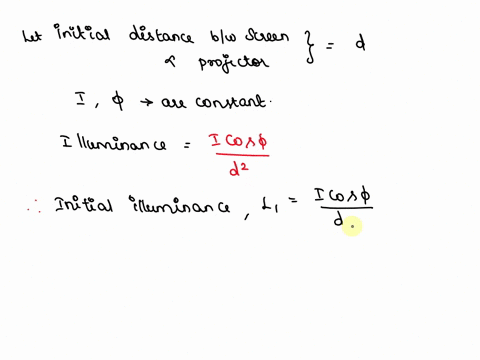 Let initial distance b/w screen } = d
& projector
I, ϕ → are constant.
Illuminance = I cosϕ / d²
∴ Initial illuminance, L₁ = I cosϕ / d